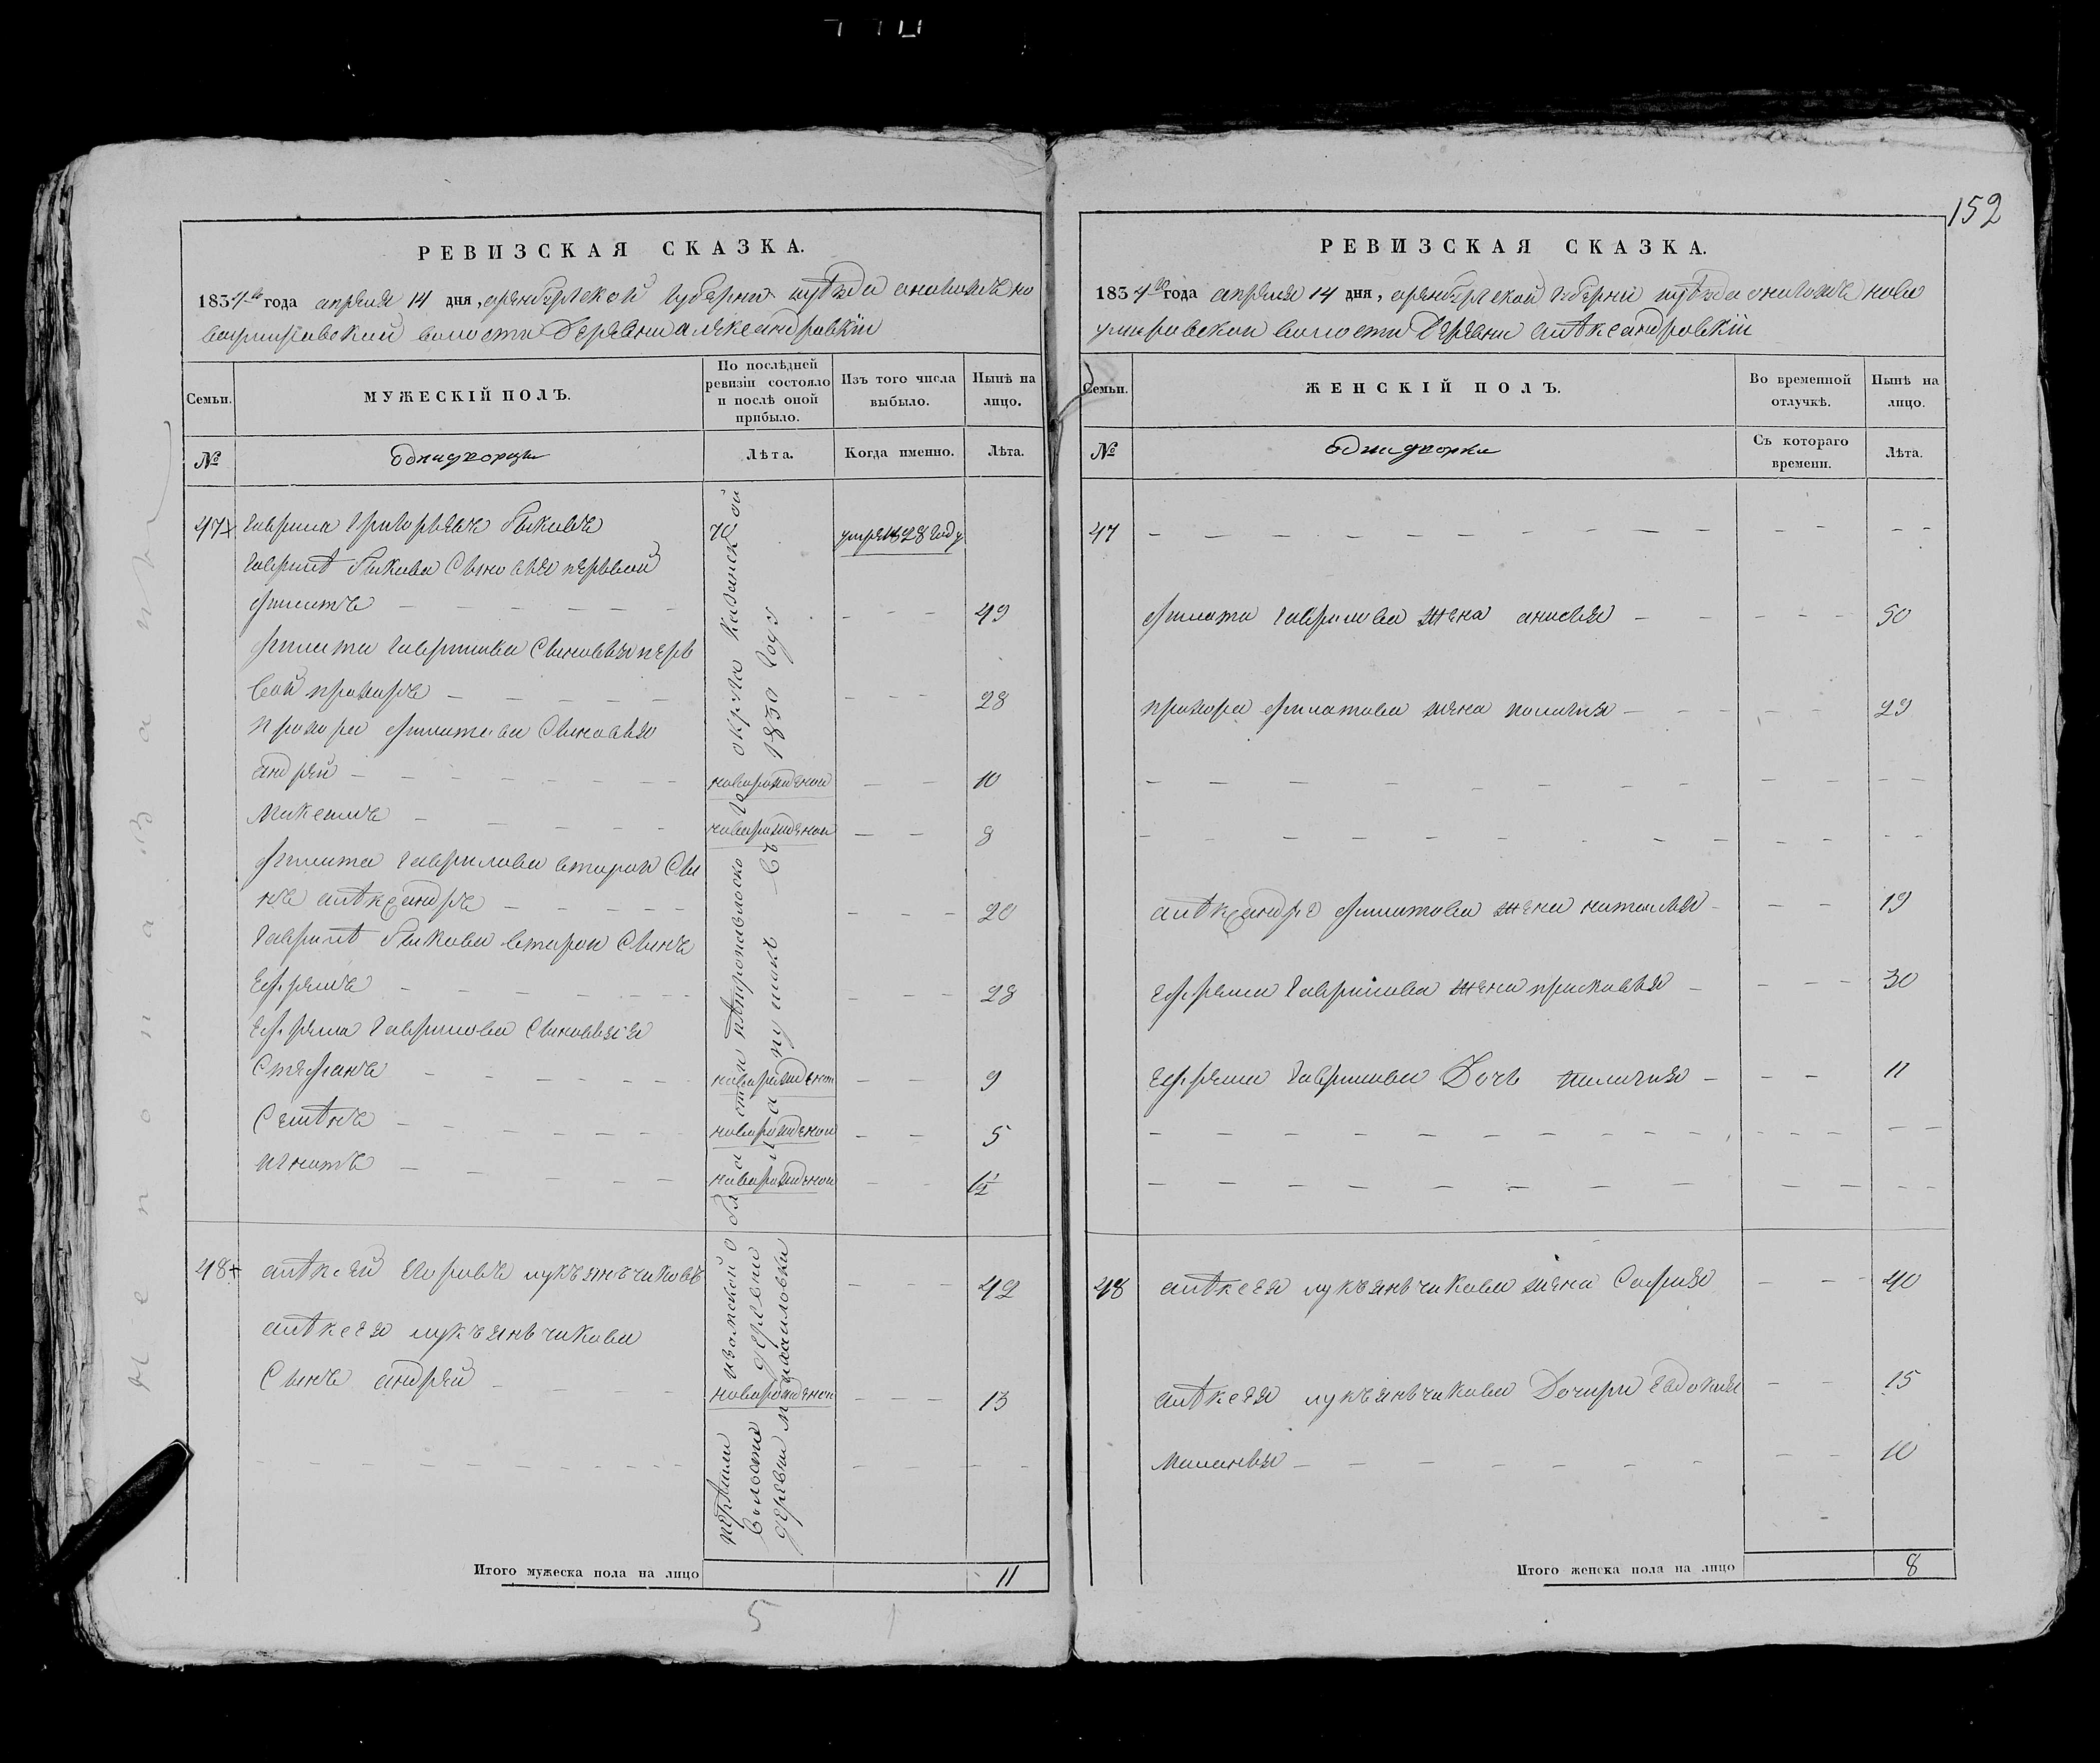 152
РЕВИЗСКАЯ СКАЗКА.
1834го года апреля 14 дня, оренбургской губернии ... ново
... волости деревни александровкiи
Семьи.
МУЖЕСКIЙ ПОЛЪ.
По послѣдней ревизiи состояло и послѣ оной прибыло.
Изъ того числа выбыло.
Нынѣ на лицо.
№
однодворцы
Лѣта.
Когда именно.
Лѣта.
47 гаврила григорьевъ быковъ 70 умре 1828 году
гаврилѣ быкова сыновья первой
филатъ 49
филата гаврилова сыновья перъ
вой прохоръ 28
прохора филатова сыновья
андрей новорожденой 10
максимъ новорожденой 8
филата гаврилова второй сы
нъ алѣксандръ 20
гаврилѣ быкова второй сынъ
ефремъ 28
ефрема гаврилова сыновья
стефанъ новорожденой 9
семѣнъ новорожденой 5
игнатъ новорожденой 1/2
48 алѣксей егоровъ лукъянъчиковъ 42
алѣксея лукъянъчикова
сынъ андрей новорожденой 13
округа
въ 1830 году
волости деревни
деревни
Итого мужеска пола на лицо 11
РЕВИЗСКАЯ СКАЗКА.
1834го года апреля 14 дня, оренбургской губернiи ... ново
... волости деревни алѣксандровкiи
Семьи.
ЖЕНСКIЙ ПОЛЪ.
Во временной отлучкѣ.
Нынѣ на лицо.
№
однодворки
Съ котораго времени.
Лѣта.
47
филата гаврилова жена анисья 50
прохора филатова жена пелагия 29
алѣксандра филатова жена наталья 19
ефрема гаврилова жена прасковья 30
ефрема гаврилова дочь пелагия 11
48 алѣксея лукъянъчикова жена софия 40
алѣксея лукъянъчикова дочири евдокия 15
маланья 10
Итого женска пола на лицо 8